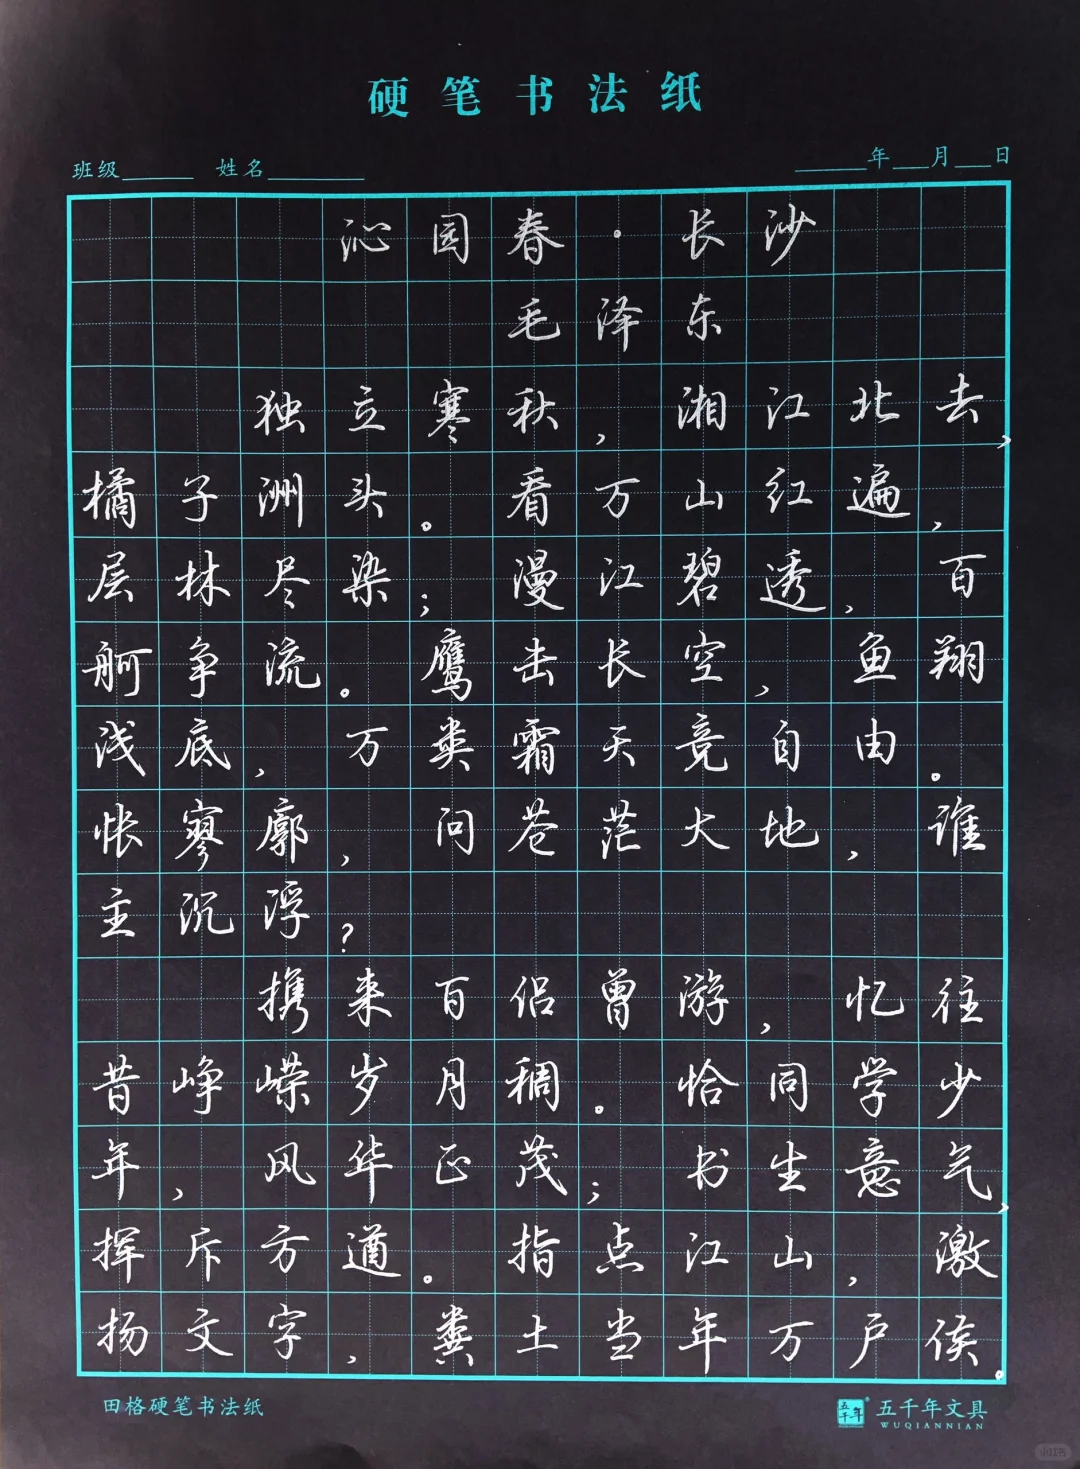 硬笔书法纸
班级 姓名 年 月 日
沁园春·长沙
毛泽东
独立寒秋,湘江北去,
橘子洲头。看万山红遍,
层林尽染;漫江碧透,百
舸争流。鹰击长空,鱼翔
浅底,万类霜天竞自由。
怅寥廓,问苍茫大地,谁
主沉浮?
携来百侣曾游,忆往
昔峥嵘岁月稠。恰同学少
年,风华正茂;书生意气,
挥斥方遒。指点江山,激
扬文字,粪土当年万户侯。
田格硬笔书法纸
五千年 五千年文具
WUQIANNIAN
小红书